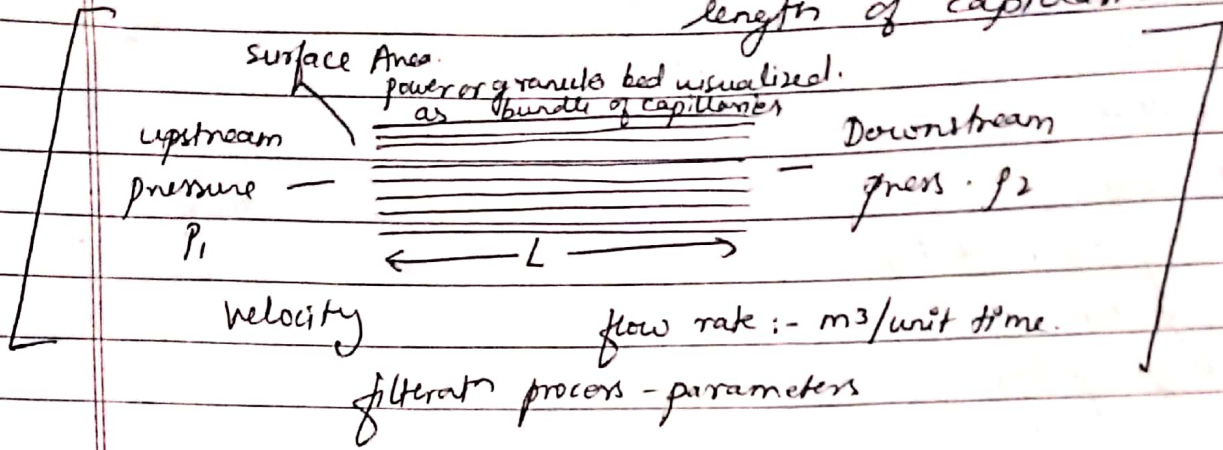 length of capillar
surface Area.
power or granules bed visualized.
as bundle of capillaries
upstream
pressure —
P1
Downstream
— press. P2
L
velocity
flow rate :- m3/unit time.
filteratn process - parameters